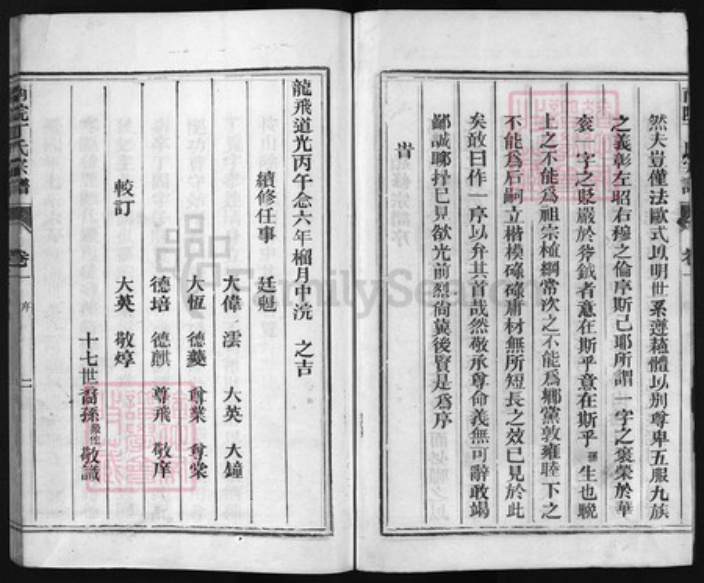 然夫豈僅法歐式以明世系遵蘓體以別尊卑五服九族
之義彰左昭右穆之倫序斯已耶所謂一字之襃榮於華
袞一字之貶嚴於斧鉞者意在斯乎意在斯乎 生也晚
上之不能爲祖宗植綱常次之不能爲鄉黨敦雍睦下之
不能爲后嗣立楷模碌碌庸材無所短長之效已見於此
矣敢曰作一序以弁其首哉然敬承尊命義無可辭敢竭
鄙誠聊抒已見欲光前烈尙冀後賢是爲序
旹
龍飛道光丙午念六年榴月中浣 之吉
續修任事 廷魁
大偉 澐 大英 大鐘
大恆 德夔 尊業 尊棠
德培 德麒 尊飛 敬庠
較訂 大英 敬焞
十七世裔孫 敬識
南院丁氏宗譜 卷一 序 二
FamilySearch